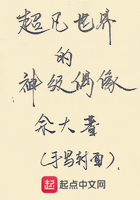 超凡世界
的
神级偶像
大
(手写封面)
起点中文网